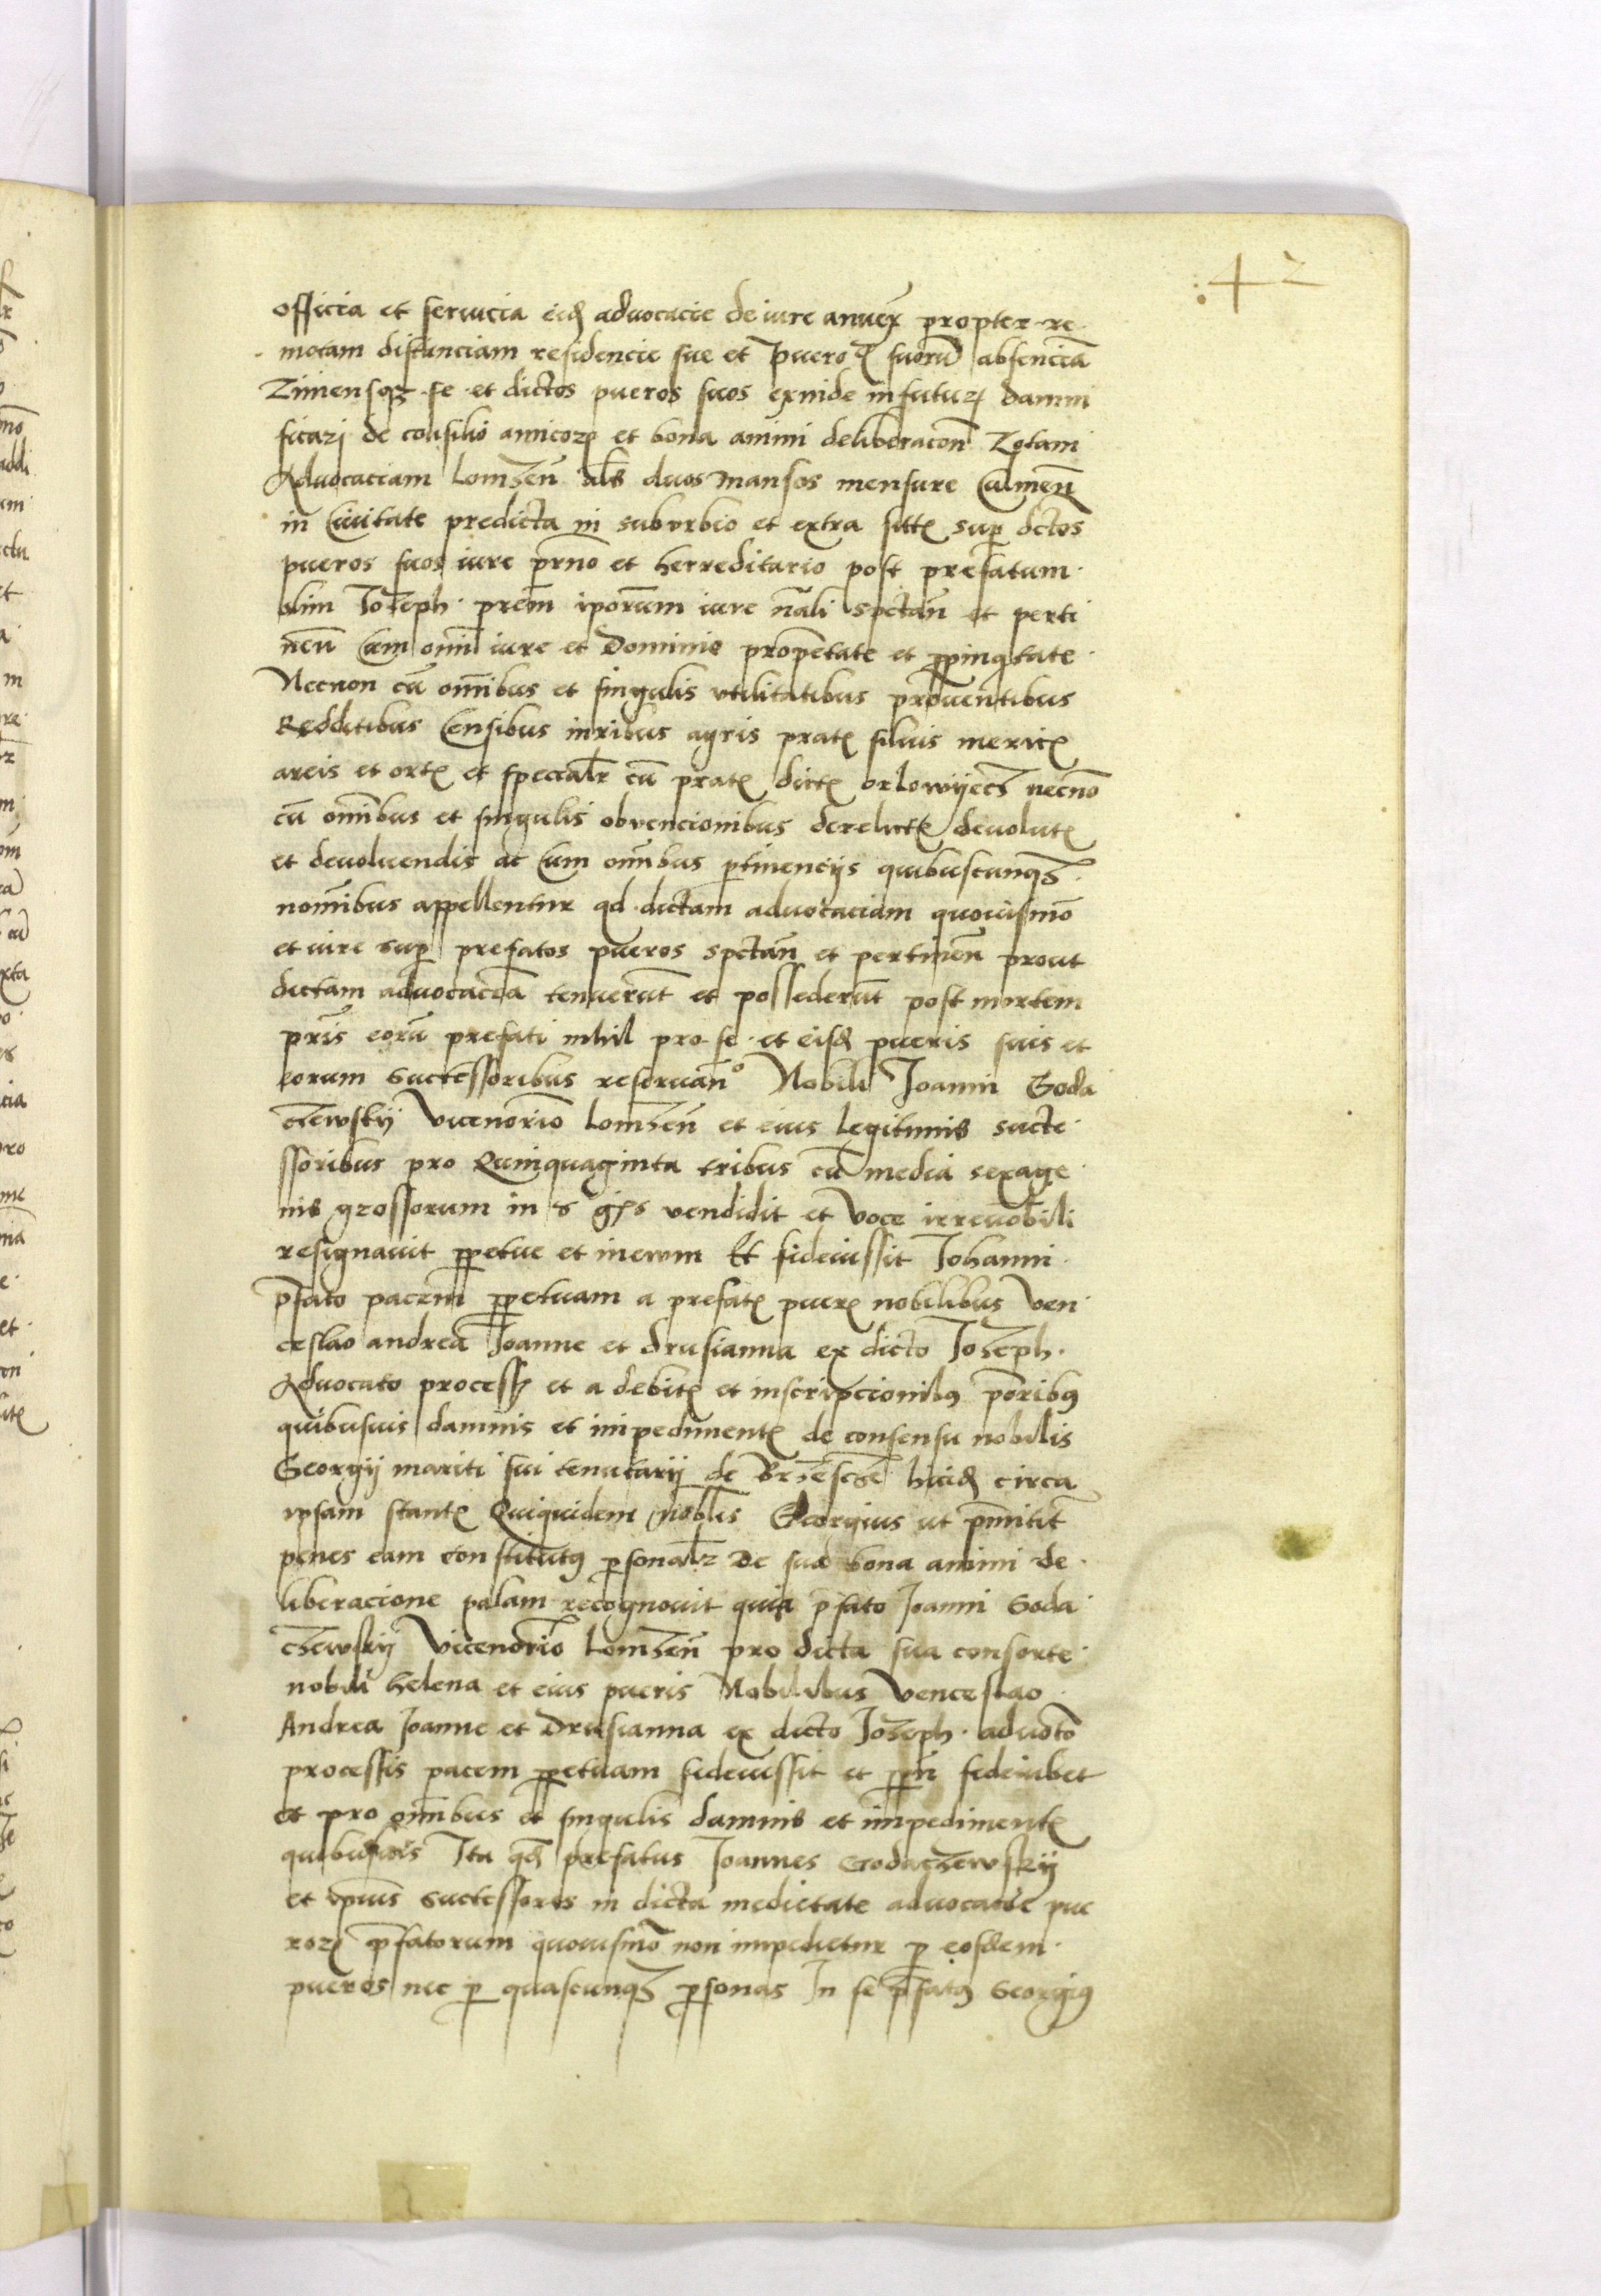 42
officia et servicia eid advocacie de iure annex propter re
motam distanciam residencie sue et puerorum suorum absenciam
Timens se et dictos pueros suos exinde in futur damni
ficari de consilio amicor et bona animi deliberacon Totam
Advocaciam Lomzen als duos mansos mensure Culmen
in Civitate predicta in suburbio et extra sitis sup dctos
pueros suos iure prno et herreditario post prefatum
olim Joseph prem iporum iure nrali spectan et perti
nen Cum omni iure et Dominio proprietate et ppinqtate
Necnon cu omnibus et singulis utilitatibus proventibus
Redditibus Censibus iuribus agris pratis silvis mericis
areis et ortis et speccialr cu pratis dictis orlowyecz necno
cu omnibus et singulis obvencionibus derelictis devolutis
et devoluendis ac Cum omnibus ptinencijs quibuscunqz
nominibus appellentur ad dictam advocaciam quovismo
et iure sup prefatos pueros spectan et pertinen prout
dictam advocaciam tenuerut et possederut post mortem
pris eoru prefati nihil pro se et eisd pueris suis et
eorum Successoribus reservan Nobili Joanni Goda
czewskij Vicenotrio Lomzen et eius legitimis succe
ssoribus pro Quinquaginta tribus cu media sexage
nis grossorum in vendidit et voce irrevobili
resignavit ppetue et in evum Et fideiussit Johanni
pfato pacem ppetuam a prefatis pueris nobilibus Ven
ceslao andrea Joanne et Drusianna ex dicto Joseph
Advocato process et a debitis et inscripcionibus prioribus
quibusvis damnis et impedimentis de consensu nobilis
Georgij mariti sui tenutarij de circa
ipsam stantis Quiquidem nobilis Georgius ut pmittit
penes eam constitutus psonalr De sua bona animi de
liberacione palam recognovit quia pfato Joanni Goda
czewskij Vicenotrio Lomzen pro dicta sua consorte
nobili Helena et eius pueris Nobilibus Venceslao
Andrea Joanne et Drusianna ex dicto Joseph advocto
processis pacem ppetuam fideiussit et ppn fideiubet
et pro omnibus et singulis damnis et impedimentis
quibusvis Ita qd prefatus Joannes Godaczewskij
et ipius Successores in dicta medietate advocacie pue
ror pfatorum quovismo non impedietur p eosdem
pueros nec p quascunqz psonas In se pfatus Georgius